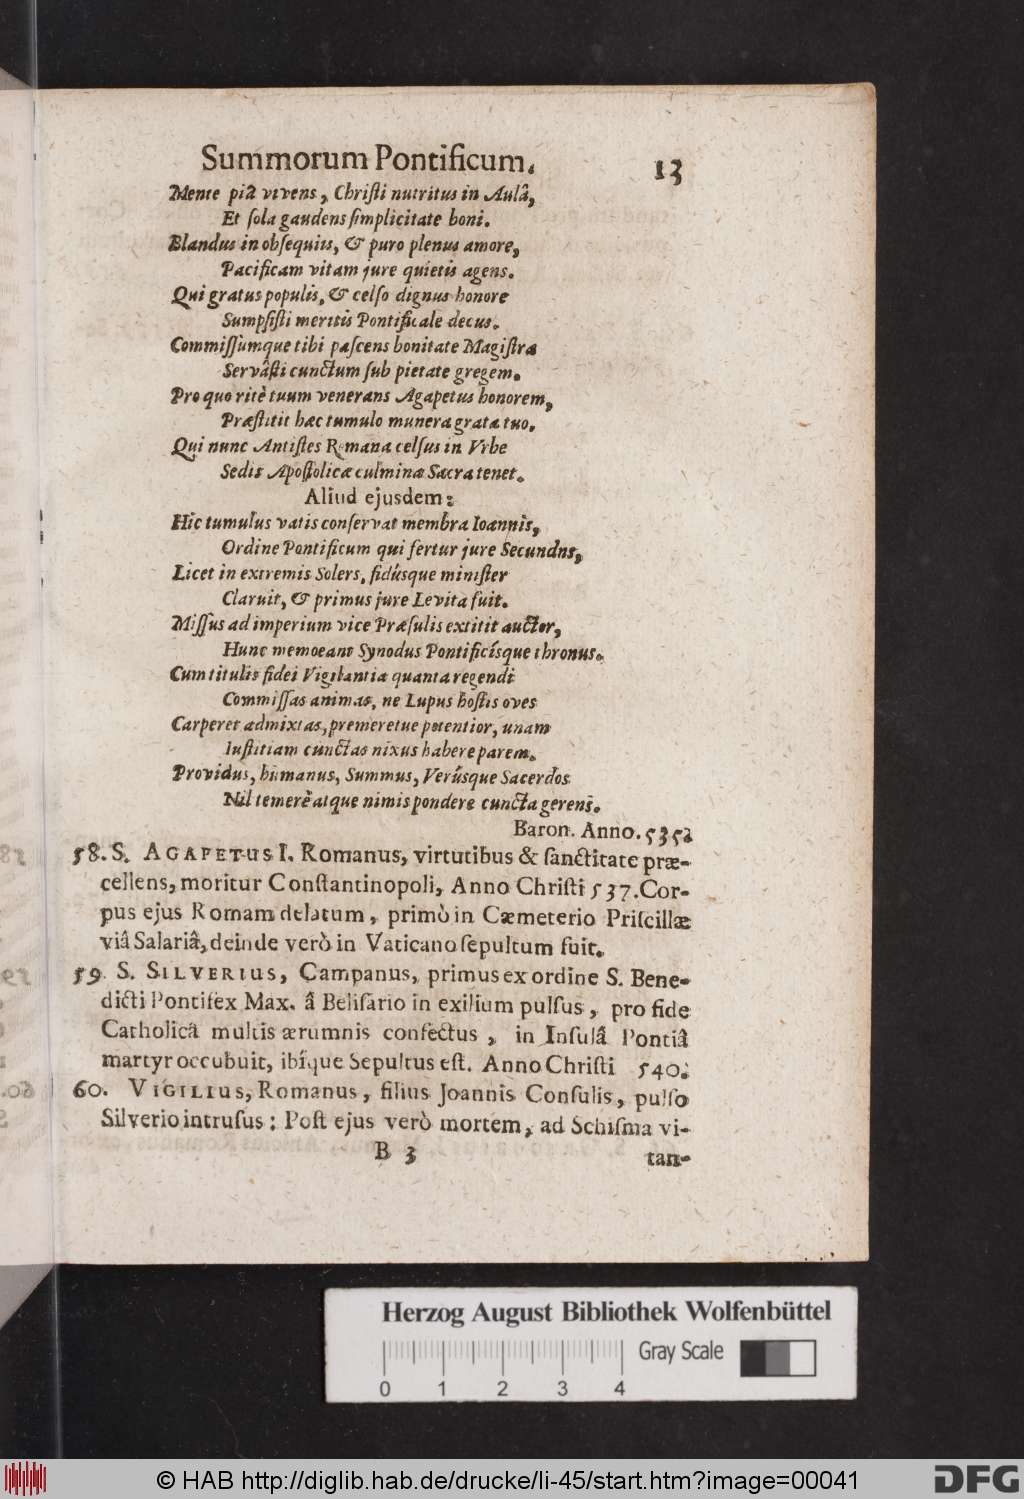 Summorum Pontificum. 13
Mente piâ vivens, Chriſti nutritus in Aulâ,
Et ſola gaudens ſimplicitate boni.
Blandus in obſequiis, & puro plenus amore,
Pacificam vitam jure quietis agens.
Qui gratus populis, & celſo dignus honore
Sumpſiſti meritis Pontificale decus.
Commiſſùmque tibi paſcens bonitate Magiſtra
Servâſti cunctum ſub pietate gregem.
Pro quo ritè tuum venerans Agapetus honorem,
Præſtitit hæc tumulo munera grata tuo.
Qui nunc Antiſtes Romana celſus in Vrbe
Sedis Apoſtolicæ culmina Sacra tenet.
Aliud ejusdem:
Hic tumulus vatis conſervat membra Ioannis,
Ordine Pontificum qui fertur jure Secundus,
Licet in extremis Solers, fidúsque miniſter
Claruit, & primus jure Levita fuit.
Miſſus ad imperium vice Præſulis extitit auctor,
Hunc memoeant Synodus Pontificísque thronus.
Cum titulis fidei Vigilantia quanta regendi
Commiſſas animas, ne Lupus hoſtis oves
Carperet admixtas, premeretue potentior, unam
Iuſtitiam cunctas nixus habere parem.
Providus, humanus, Summus, Verúsque Sacerdos
Nil temerè atque nimis pondere cuncta gerens.
Baron. Anno. 535.
58. S. AGAPETUS I. Romanus, virtutibus & ſanctitate præ-
cellens, moritur Conſtantinopoli, Anno Chriſti 537. Cor-
pus ejus Romam delatum, primò in Cæmeterio Priſcillæ
viâ Salariâ, deinde verò in Vaticano ſepultum fuit.
59. S. SILVERIUS, Campanus, primus ex ordine S. Bene-
dicti Pontifex Max. â Beliſario in exilium pulſus, pro fide
Catholicâ multis ærumnis confectus, in Inſulâ Pontiâ
martyr occubuit, ibíque Sepultus eſt. Anno Chriſti 540.
60. VIGILIUS, Romanus, filius Joannis Conſulis, pulſo
Silverio intruſus: Poſt ejus verò mortem, ad Schiſma vi-
B 3 tan-
Herzog August Bibliothek Wolfenbüttel
Gray Scale
0 1 2 3 4
© HAB http://diglib.hab.de/drucke/li-45/start.htm?image=00041
DFG